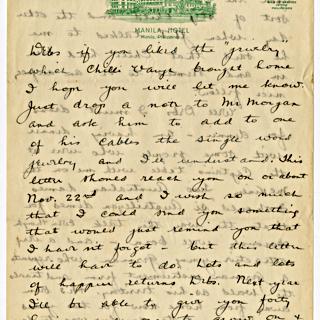 MANILA HOTEL
Manila, Philippines
Debs if you liked the "jewelry"
which Chilli Vaughn brought home
I hope you will let me know.
Just drop a note to Mr. Morgan
and ask him to add to one
of his cables the single word
jewelry and I'll understand. This
letter should reach you on or about
Nov. 22nd and I wish so much
that I could send you something
that would just remind you that
I have not forgot - but this letter
will have to do. Lots and lots
of happier returns Debs. Next year
I'll be able to give you forty